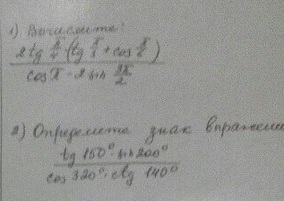 1) Вычислите:
2 tg π/4 (tg π/3 + cos π/6)
cos π - 2 sin 3π/2
2) Определите знак выражени
tg 150° · sin 200°
cos 320° · ctg 140°